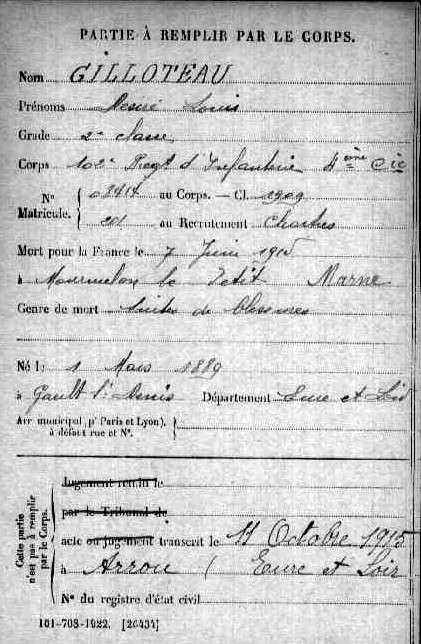 PARTIE À REMPLIR PAR LE CORPS.
Nom GILLOTEAU
Prénoms Desiré Louis
Grade 2e classe
Corps 102e Regt d'Infanterie 4ème Cie
N° Matricule. 02414 au Corps. — Cl. 1909
201 au Recrutement Chartres
Mort pour la France le 7 Juin 1915
à Mourmelon le Petit Marne
Genre de mort Suites de blessures
Né le 1 Mars 1889
à Gault St Denis Département Eure et Loir
Arr municipal (pr Paris et Lyon),
à défaut rue et N°.
Cette partie n'est pas à remplir par le Corps.
Jugement rendu le
par le Tribunal de
acte ou jugement transcrit le 11 Octobre 1915
à Arrou (Eure et Loir
N° du registre d'état civil
101-708-1922. [26434]